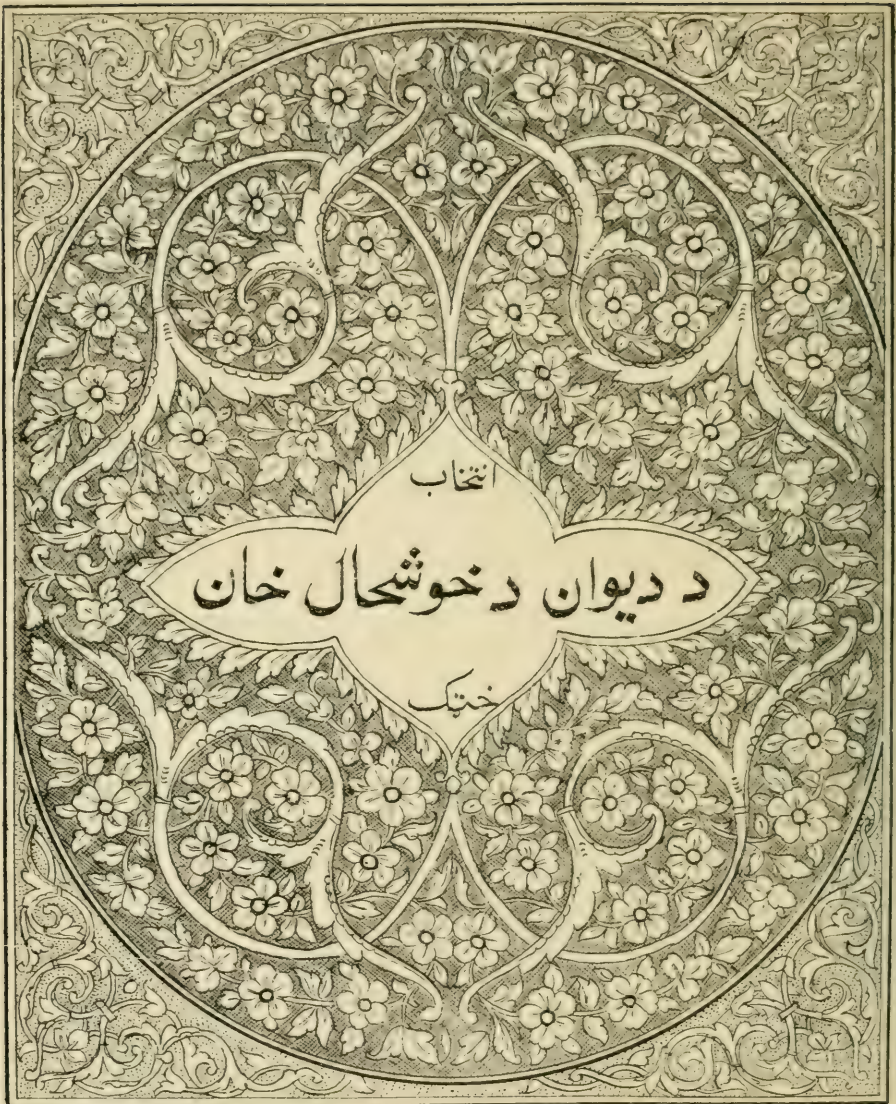 انتخاب
د ديوان د خوشحال خان
خټک